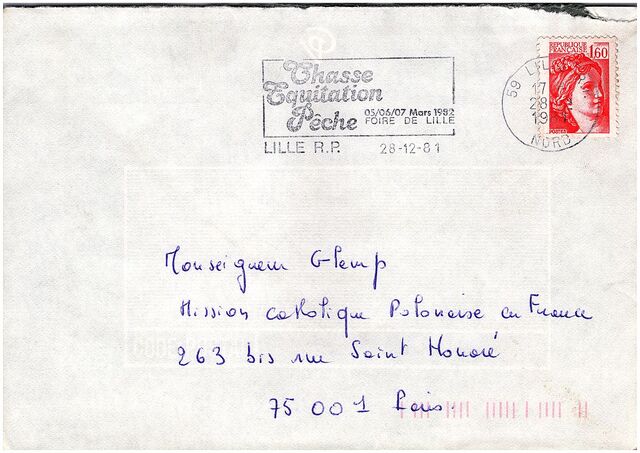 Chasse
Equitation
Pêche
05/06/07 Mars 1982
FOIRE DE LILLE
LILLE R.P. 28-12-81
59 LILLE
17
28
19
NORD
REPUBLIQUE
FRANÇAISE
1,60
POSTES
Monseigneur Glemp
Mission catholique Polonaise en France
263 bis rue Saint Honoré
75 001 Paris.